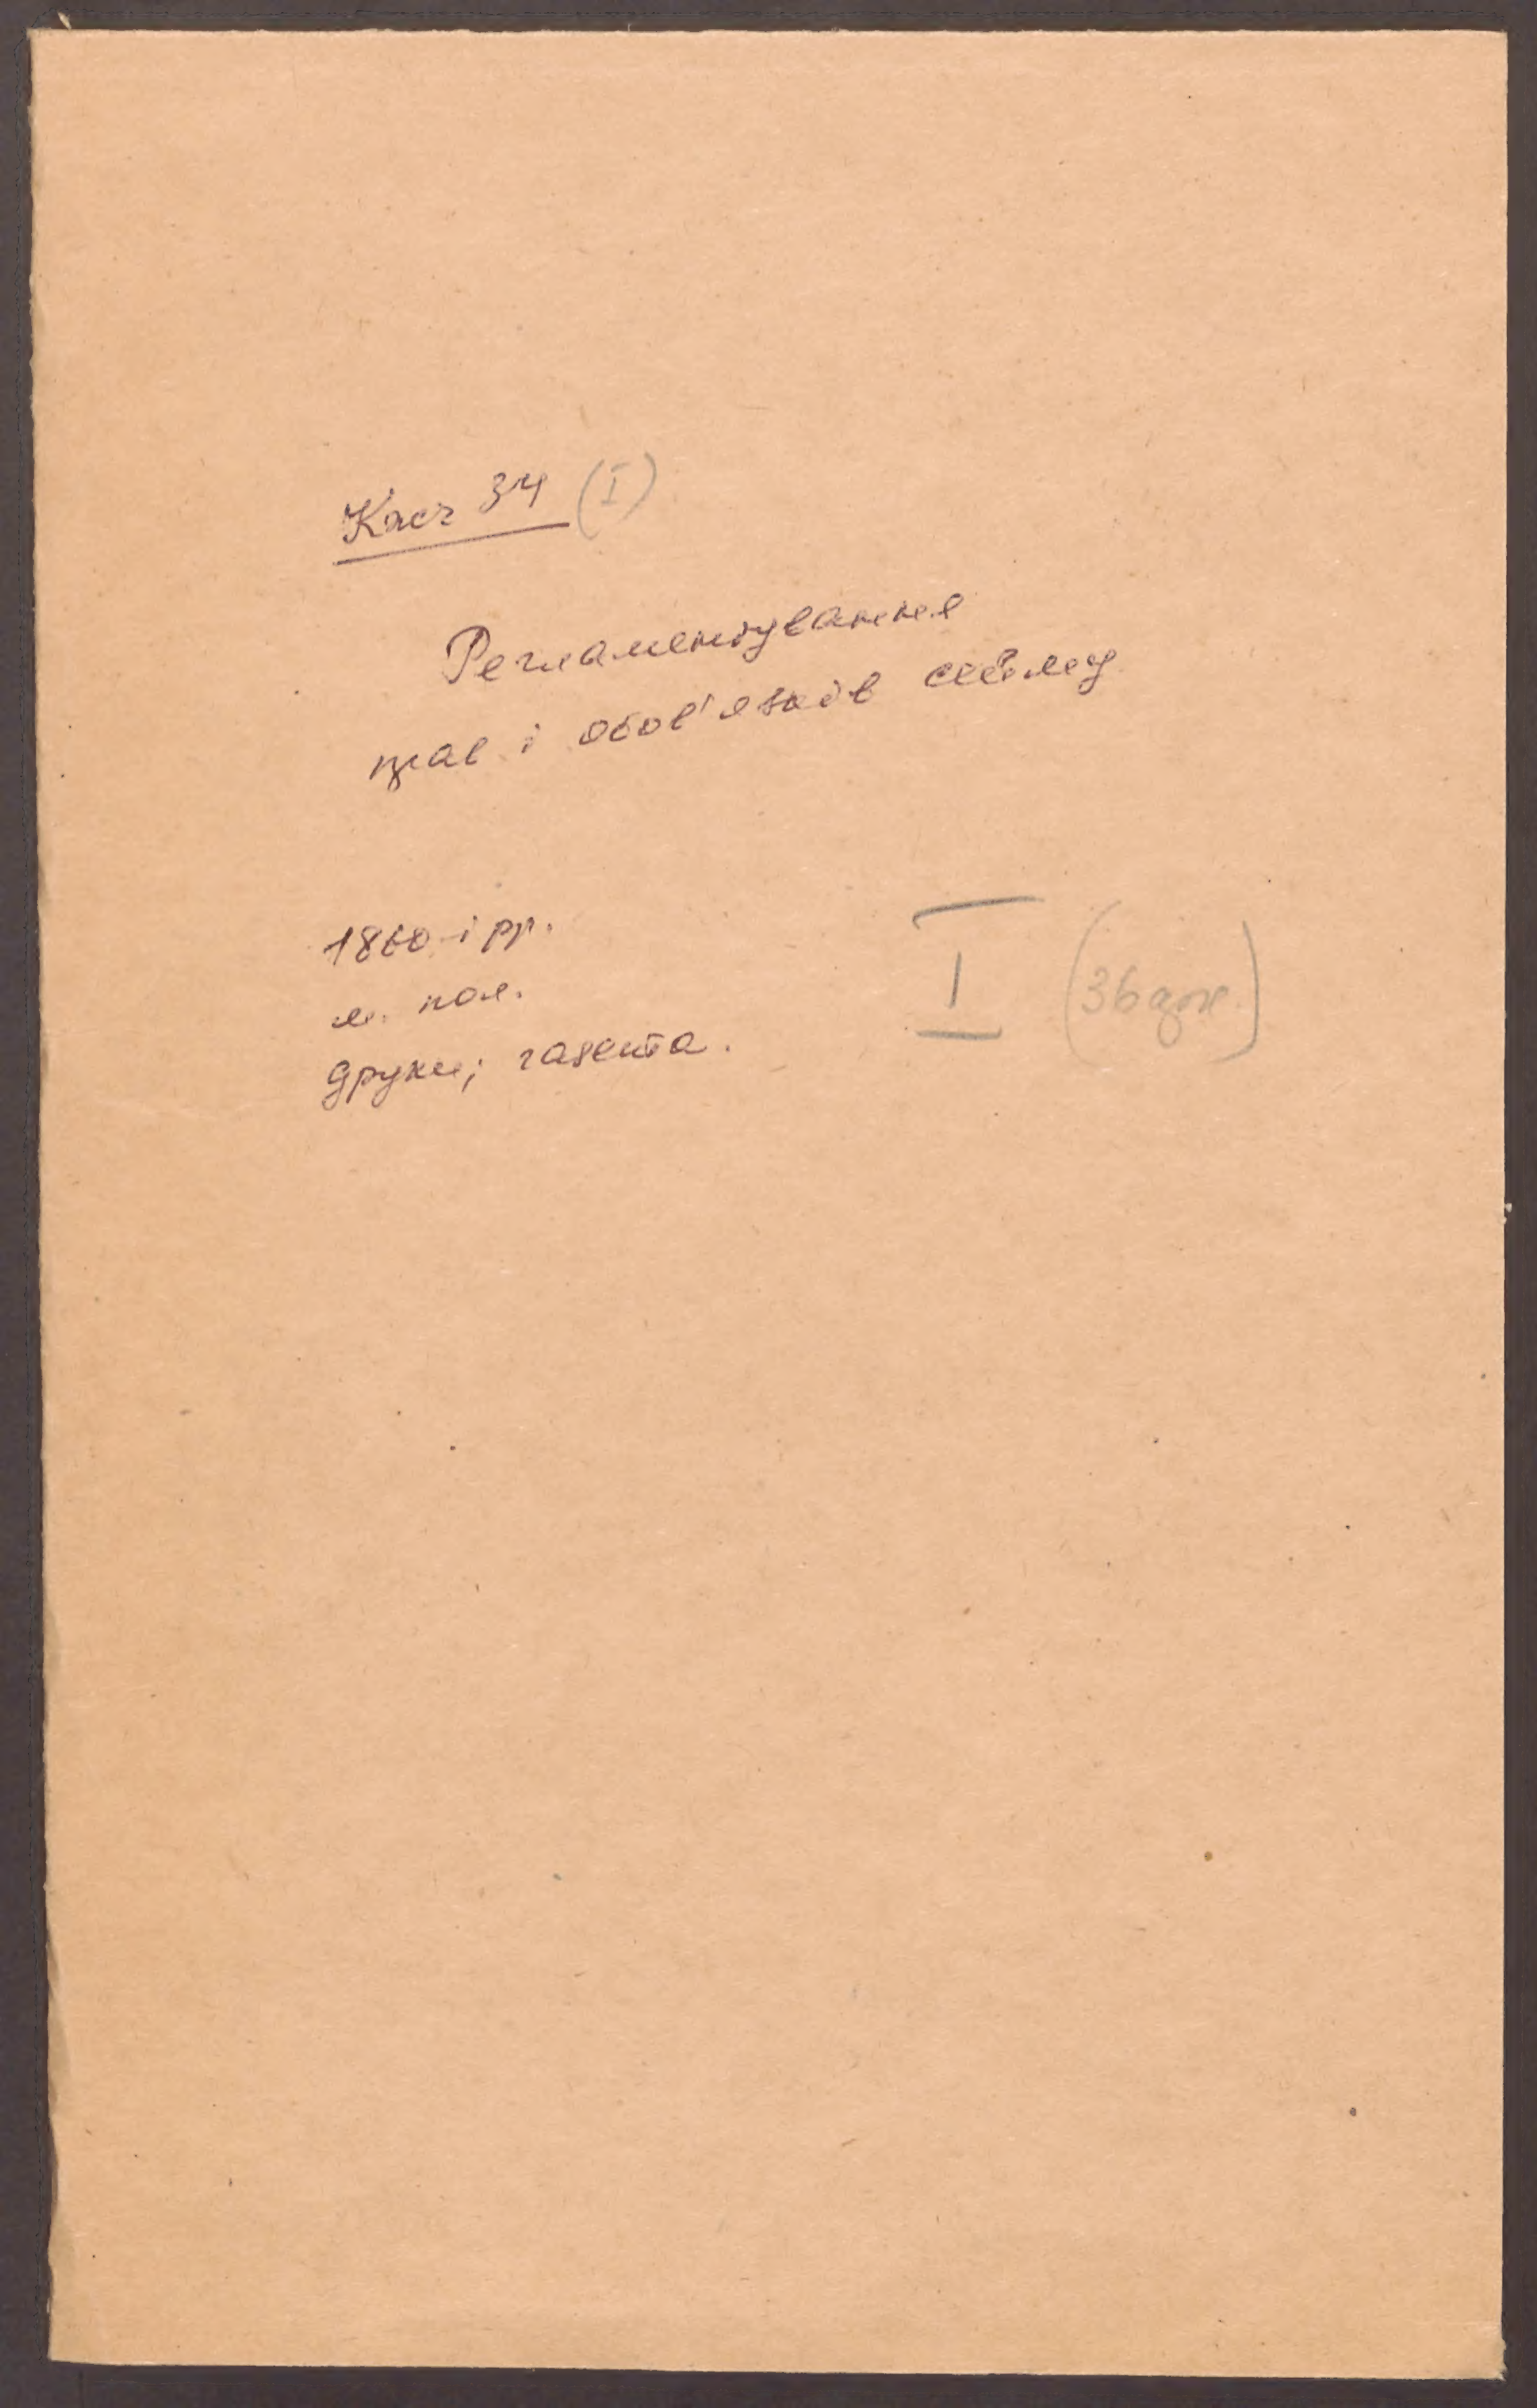 Класт 34 (I)
Регламентування
прав і обов'язків сейму
1860-і рр.
м. пол.
друки; газета.
I (36 док.)